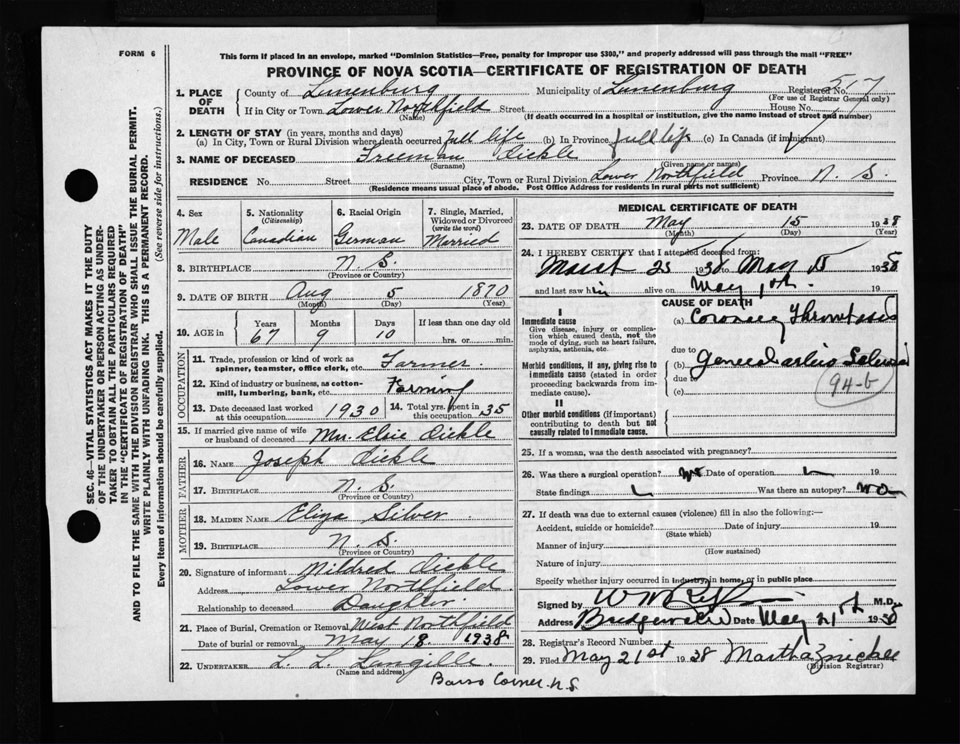 FORM 6
This form if placed in an envelope, marked "Dominion Statistics—Free, penalty for improper use $300," and properly addressed will pass through the mail "FREE"
PROVINCE OF NOVA SCOTIA—CERTIFICATE OF REGISTRATION OF DEATH
SEC. 46—VITAL STATISTICS ACT MAKES IT THE DUTY
OF THE UNDERTAKER OR PERSON ACTING AS UNDER-
TAKER TO OBTAIN ALL THE PARTICULARS REQUIRED
IN THE "CERTIFICATE OF REGISTRATION OF DEATH"
AND TO FILE THE SAME WITH THE DIVISION REGISTRAR WHO SHALL ISSUE THE BURIAL PERMIT.
WRITE PLAINLY WITH UNFADING INK. THIS IS A PERMANENT RECORD.
Every item of information should be carefully supplied. (See reverse side for instructions.)
1. PLACE OF DEATH County of Lunenburg Municipality of Lunenburg Registered No. 517
(For use of Registrar General only)
If in City or Town Lower Northfield Street House No.
(Name) (If death occurred in a hospital or institution, give the name instead of street and number)
2. LENGTH OF STAY (in years, months and days)
(a) In City, Town or Rural Division where death occurred full life (b) In Province full life (c) In Canada (if immigrant)
3. NAME OF DECEASED Freeman Eickle
(Surname) (Given name or names)
RESIDENCE No. Street City, Town or Rural Division Lower Northfield Province N. S.
(Residence means usual place of abode. Post Office Address for residents in rural parts not sufficient)
4. Sex Male
5. Nationality (Citizenship) Canadian
6. Racial Origin German
7. Single, Married, Widowed or Divorced (write the word) Married
8. BIRTHPLACE N. S.
(Province or Country)
9. DATE OF BIRTH Aug 5 1870
(Month) (Day) (Year)
10. AGE in Years Months Days If less than one day old
67 9 10 hrs. or min.
OCCUPATION
11. Trade, profession or kind of work as spinner, teamster, office clerk, etc. Farmer.
12. Kind of industry or business, as cotton-mill, lumbering, bank, etc. Farming
13. Date deceased last worked at this occupation 1930 14. Total yrs. spent in this occupation 35
15. If married give name of wife or husband of deceased Mrs. Elsie Eickle
FATHER
16. NAME Joseph Eickle
17. BIRTHPLACE N. S.
(Province or Country)
MOTHER
18. MAIDEN NAME Eliza Silver
19. BIRTHPLACE N. S.
(Province or Country)
20. Signature of informant Mildred Eickle
Address Lower Northfield
Relationship to deceased Daughter
21. Place of Burial, Cremation or Removal West Northfield
Date of burial or removal May 18 1938
22. UNDERTAKER L. L. Langille
(Name and address)
Barss Corner. N.S
MEDICAL CERTIFICATE OF DEATH
23. DATE OF DEATH May 15 1938
(Month) (Day) (Year)
24. I HEREBY CERTIFY that I attended deceased from:
March 25 1938 to May 1938
and last saw him alive on May 19
CAUSE OF DEATH
I
Immediate cause (a) Coronary Thrombosis
Give disease, injury or complication which caused death, not the mode of dying, such as heart failure, asphyxia, asthenia, etc.
due to
Morbid conditions, if any, giving rise to immediate cause (stated in order proceeding backwards from immediate cause). (b) General arterio Sclerosis
due to
(c) 94-b
II
Other morbid conditions (if important) contributing to death but not causally related to immediate cause.
25. If a woman, was the death associated with pregnancy?
26. Was there a surgical operation? no Date of operation 19
State findings Was there an autopsy? no
27. If death was due to external causes (violence) fill in also the following:—
Accident, suicide or homicide? Date of injury 19
(State which)
Manner of injury
(How sustained)
Nature of injury
Specify whether injury occurred in industry, in home, or in public place
Signed by M.D.
Address Bridgewater Date May 21st 1938
28. Registrar's Record Number
29. Filed May 21st 1938 Martha Zinckle
(Division Registrar)